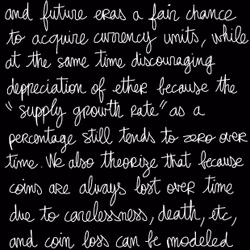 and future eras a fair chance
to acquire currency units, while
at the same time discouraging
depreciation of ether because the
"supply growth rate" as a
percentage still tends to zero over
time. We also theorize that because
coins are always lost over time
due to carelessness, death, etc,
and coin loss can be modeled